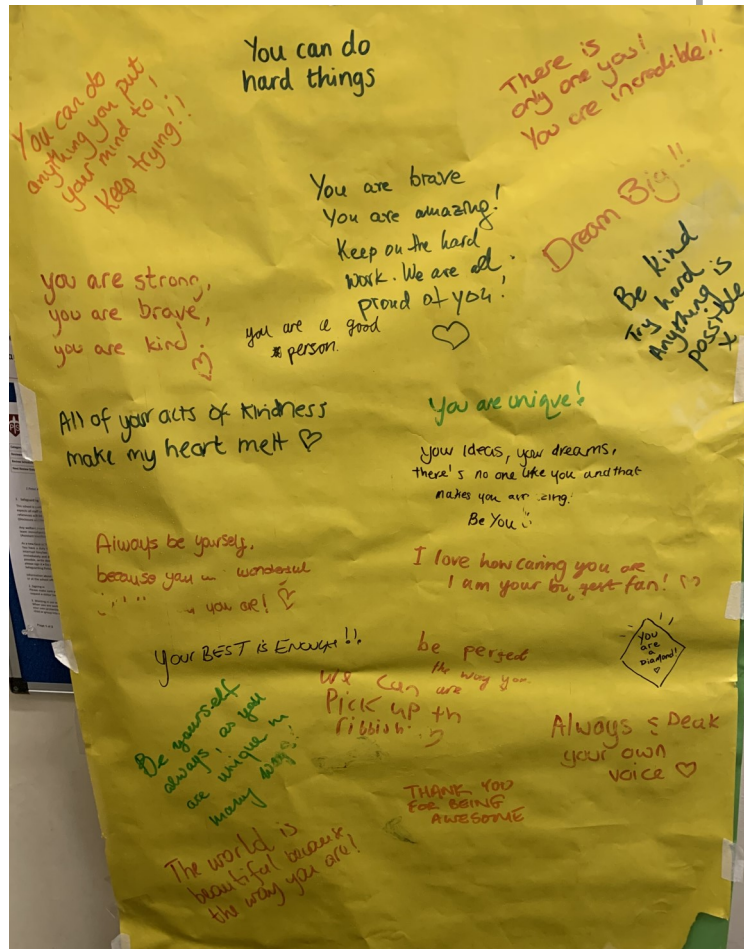 You can do
hard things
You can do
anything you put
your mind to!
Keep trying!!
There is
only one you!
You are incredible!!
You are brave
You are amazing!
Keep on the hard
work. We are all
proud of you!
Dream Big!!
Be kind
Try hard
Anything is
possible
x
you are strong,
you are brave,
you are kind.
you are a good
person.
All of your acts of kindness
make my heart melt
You are unique!
your ideas, your dreams,
there's no one like you and that
makes you
Be You
Always be yourself,
because you wonderful
you are!
I love how caring you are
I am your fan!
YOUR BEST IS ENOUGH!!
be perfect
the way you
are
You
are
a
Diamond!
we can
Pick up th
ribbish.
Be yourself
always, as you
are unique in
many ways!
Always speak
your own
voice
THANK YOU
FOR BEING
AWESOME
The world is
beautiful because
the way you are!